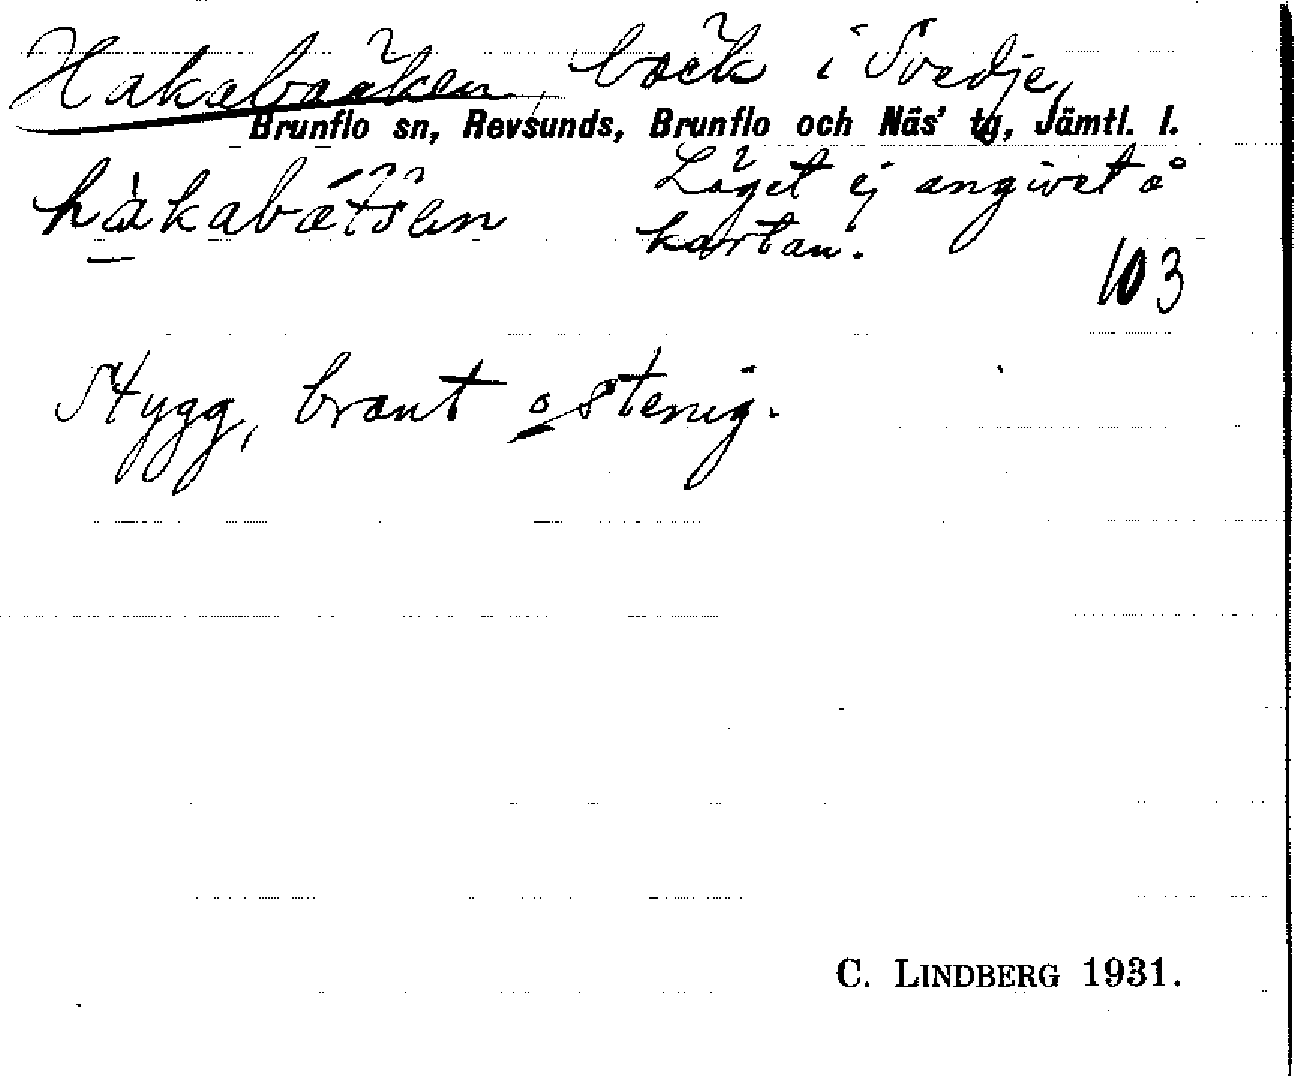 Hakabäcken, bäck i Svedje,
Brunflo sn, Revsunds, Brunflo och Näs' tg, Jämtl. l.
hàkabät́s̀en Läget ej angivet å
kartan.
103
Stygg, brant o stenig.
C. LINDBERG 1931.